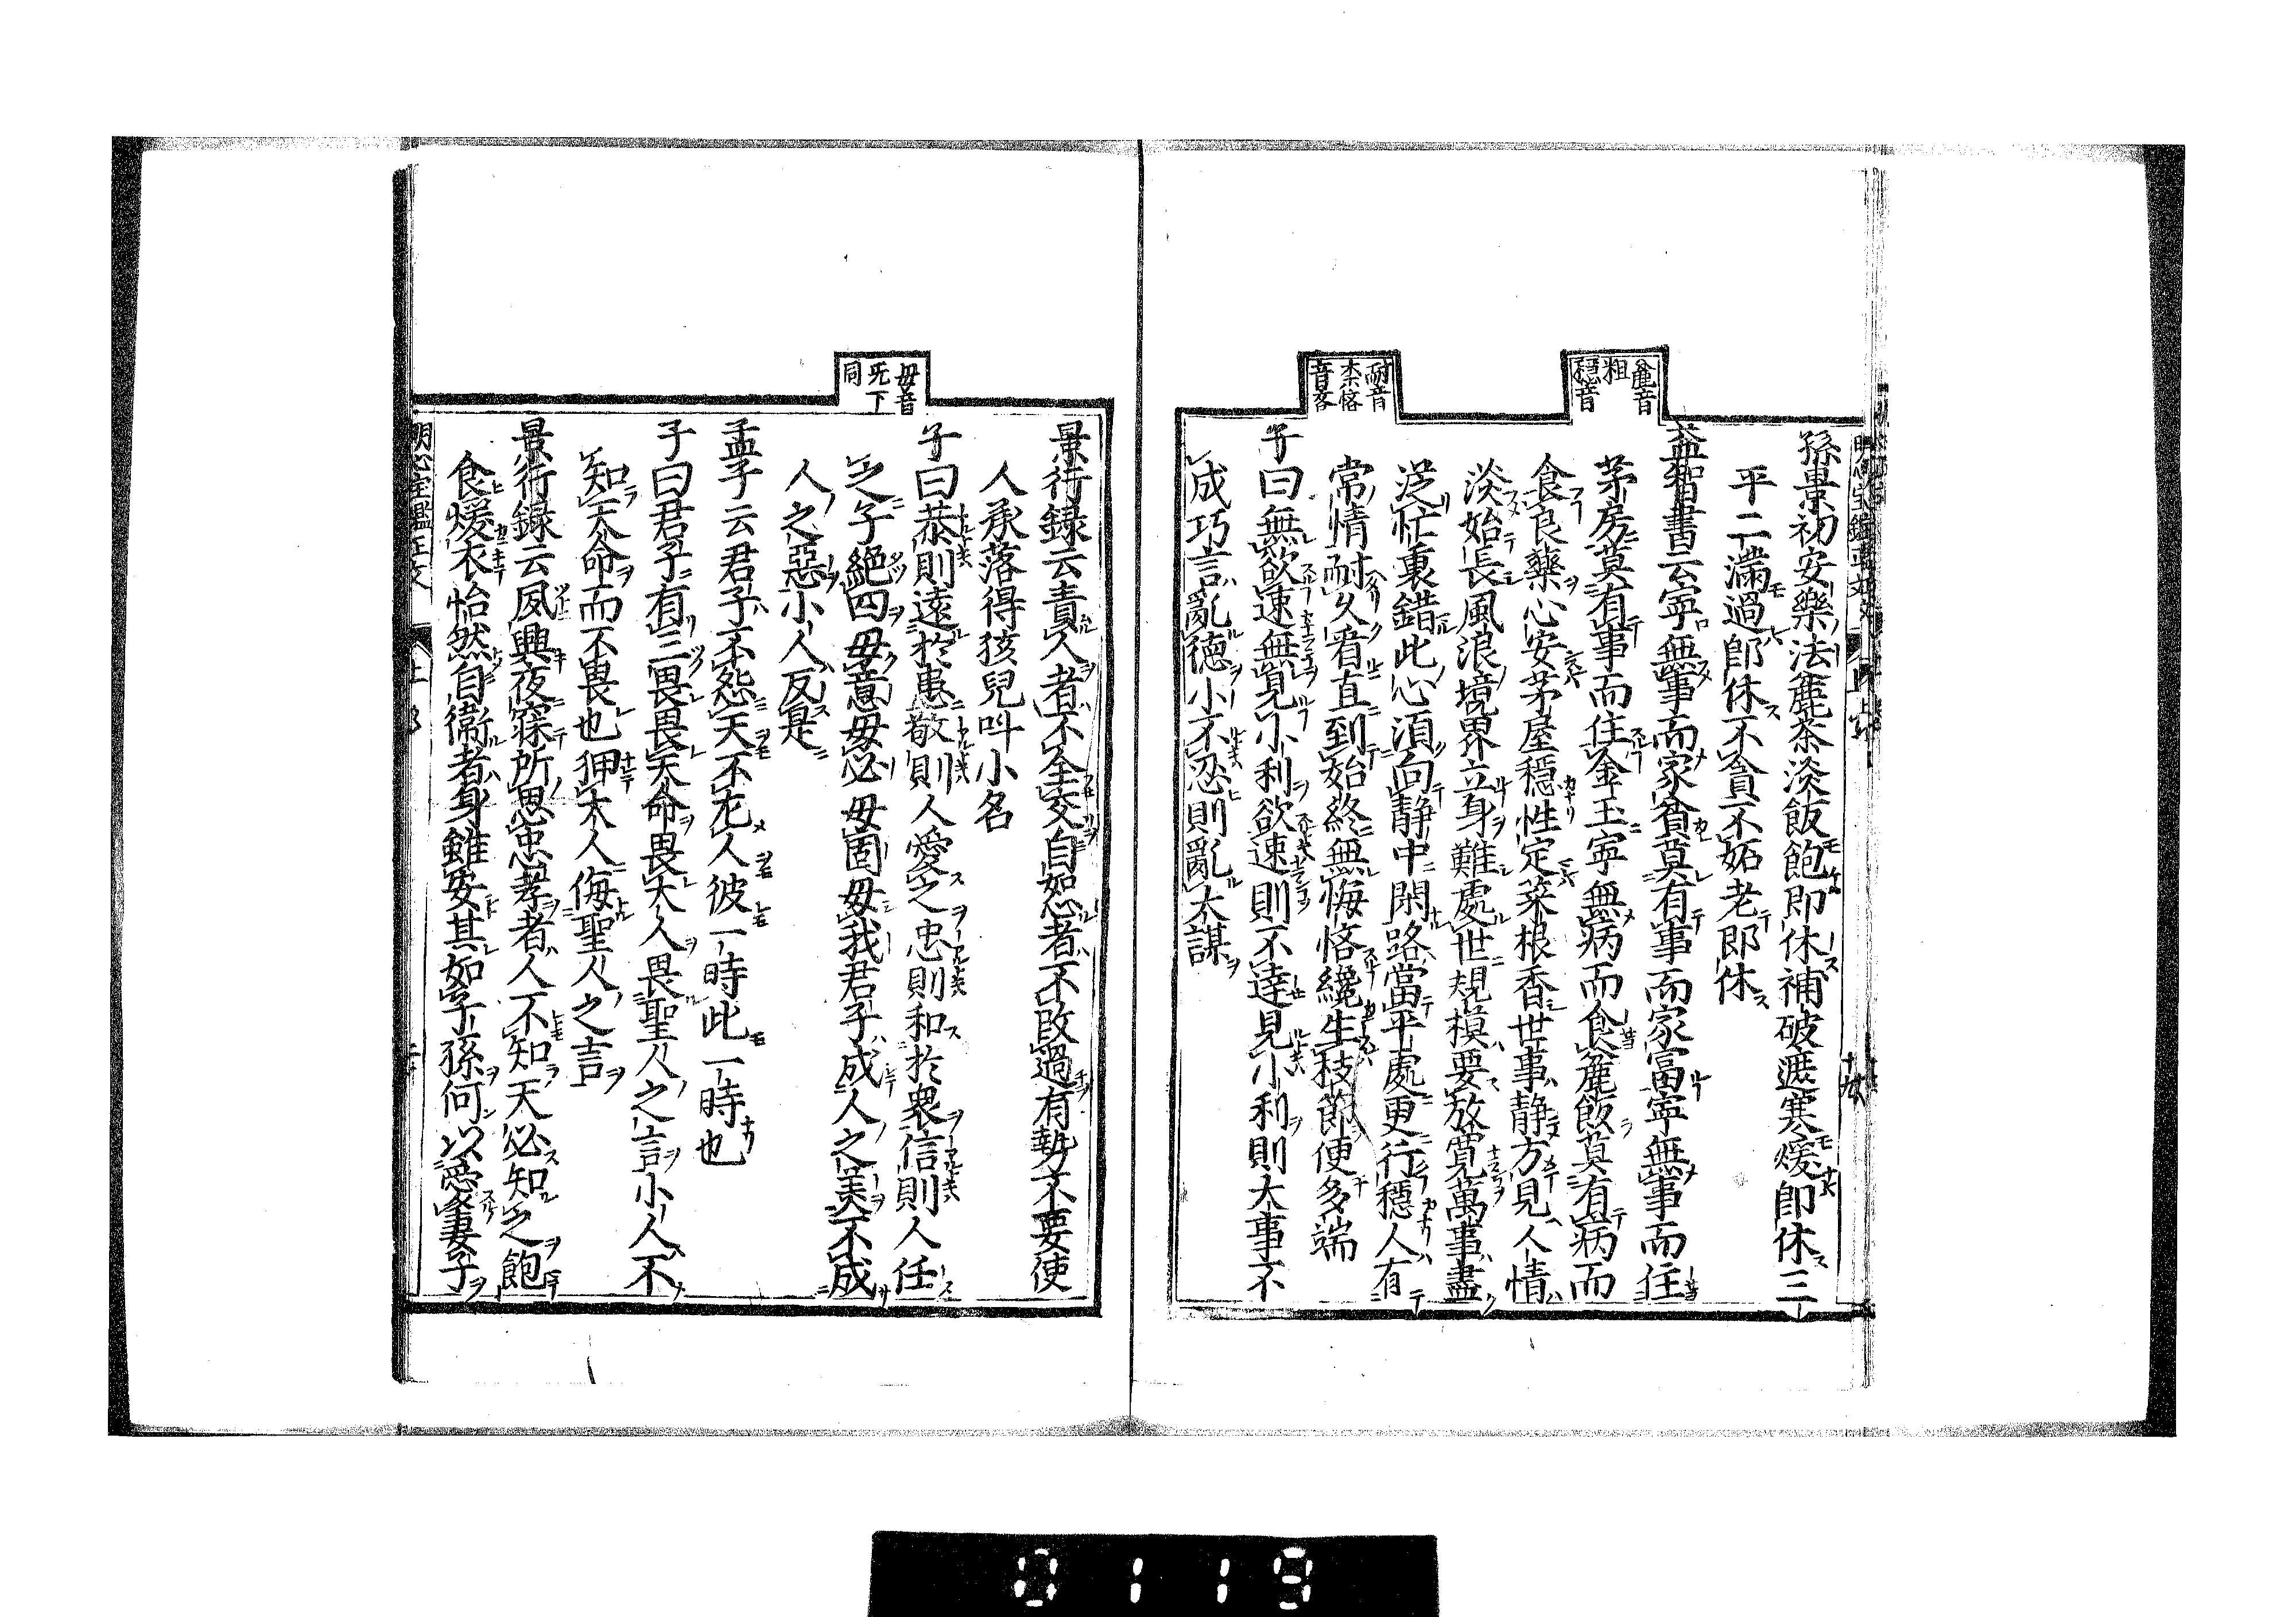 麁音
粗
穏音
耐音
柰悋
音吝
孫景初安樂法麁茶淡飯飽即休補破遮寒煖即休三
平二滿過即休不貪不妬老即休
益智書云寧無事而家貧莫有事而家富寧無事而住
茅房莫有事而住金玉寧無病而食麁飯莫有病而
食良藥心安茅屋穩性定菜根香世事静方見人情
淡始長風浪境界立身難處世規模要放寬萬事盡
從忙裏錯此心須向静中閑路當平處更行穩人有
常情耐久看直到始終無悔悋纔生枝節便多端
子曰無欲速無見小利欲速則不達見小利則大事不
成巧言亂德小不忍則亂大謀
毋音
旡下
同
景行録云責人者不全交自恕者不改過有勢不要使
人承落得孩兒叫小名
子曰恭則遠於患敬則人愛之忠則和於衆信則人任
之子絶四毋意毋必毋固毋我君子成人之美不成
人之惡小人反是
孟子云君子不怨天不尤人彼一時此一時也
子曰君子有三畏畏天命畏大人畏聖人之言小人不
知天命而不畏也狎大人侮聖人之言
景行録云夙興夜寐所思忠孝者人不知天必知之飽
食煖衣怡然自衞者身雖安其如子孫何以愛妻子
0119